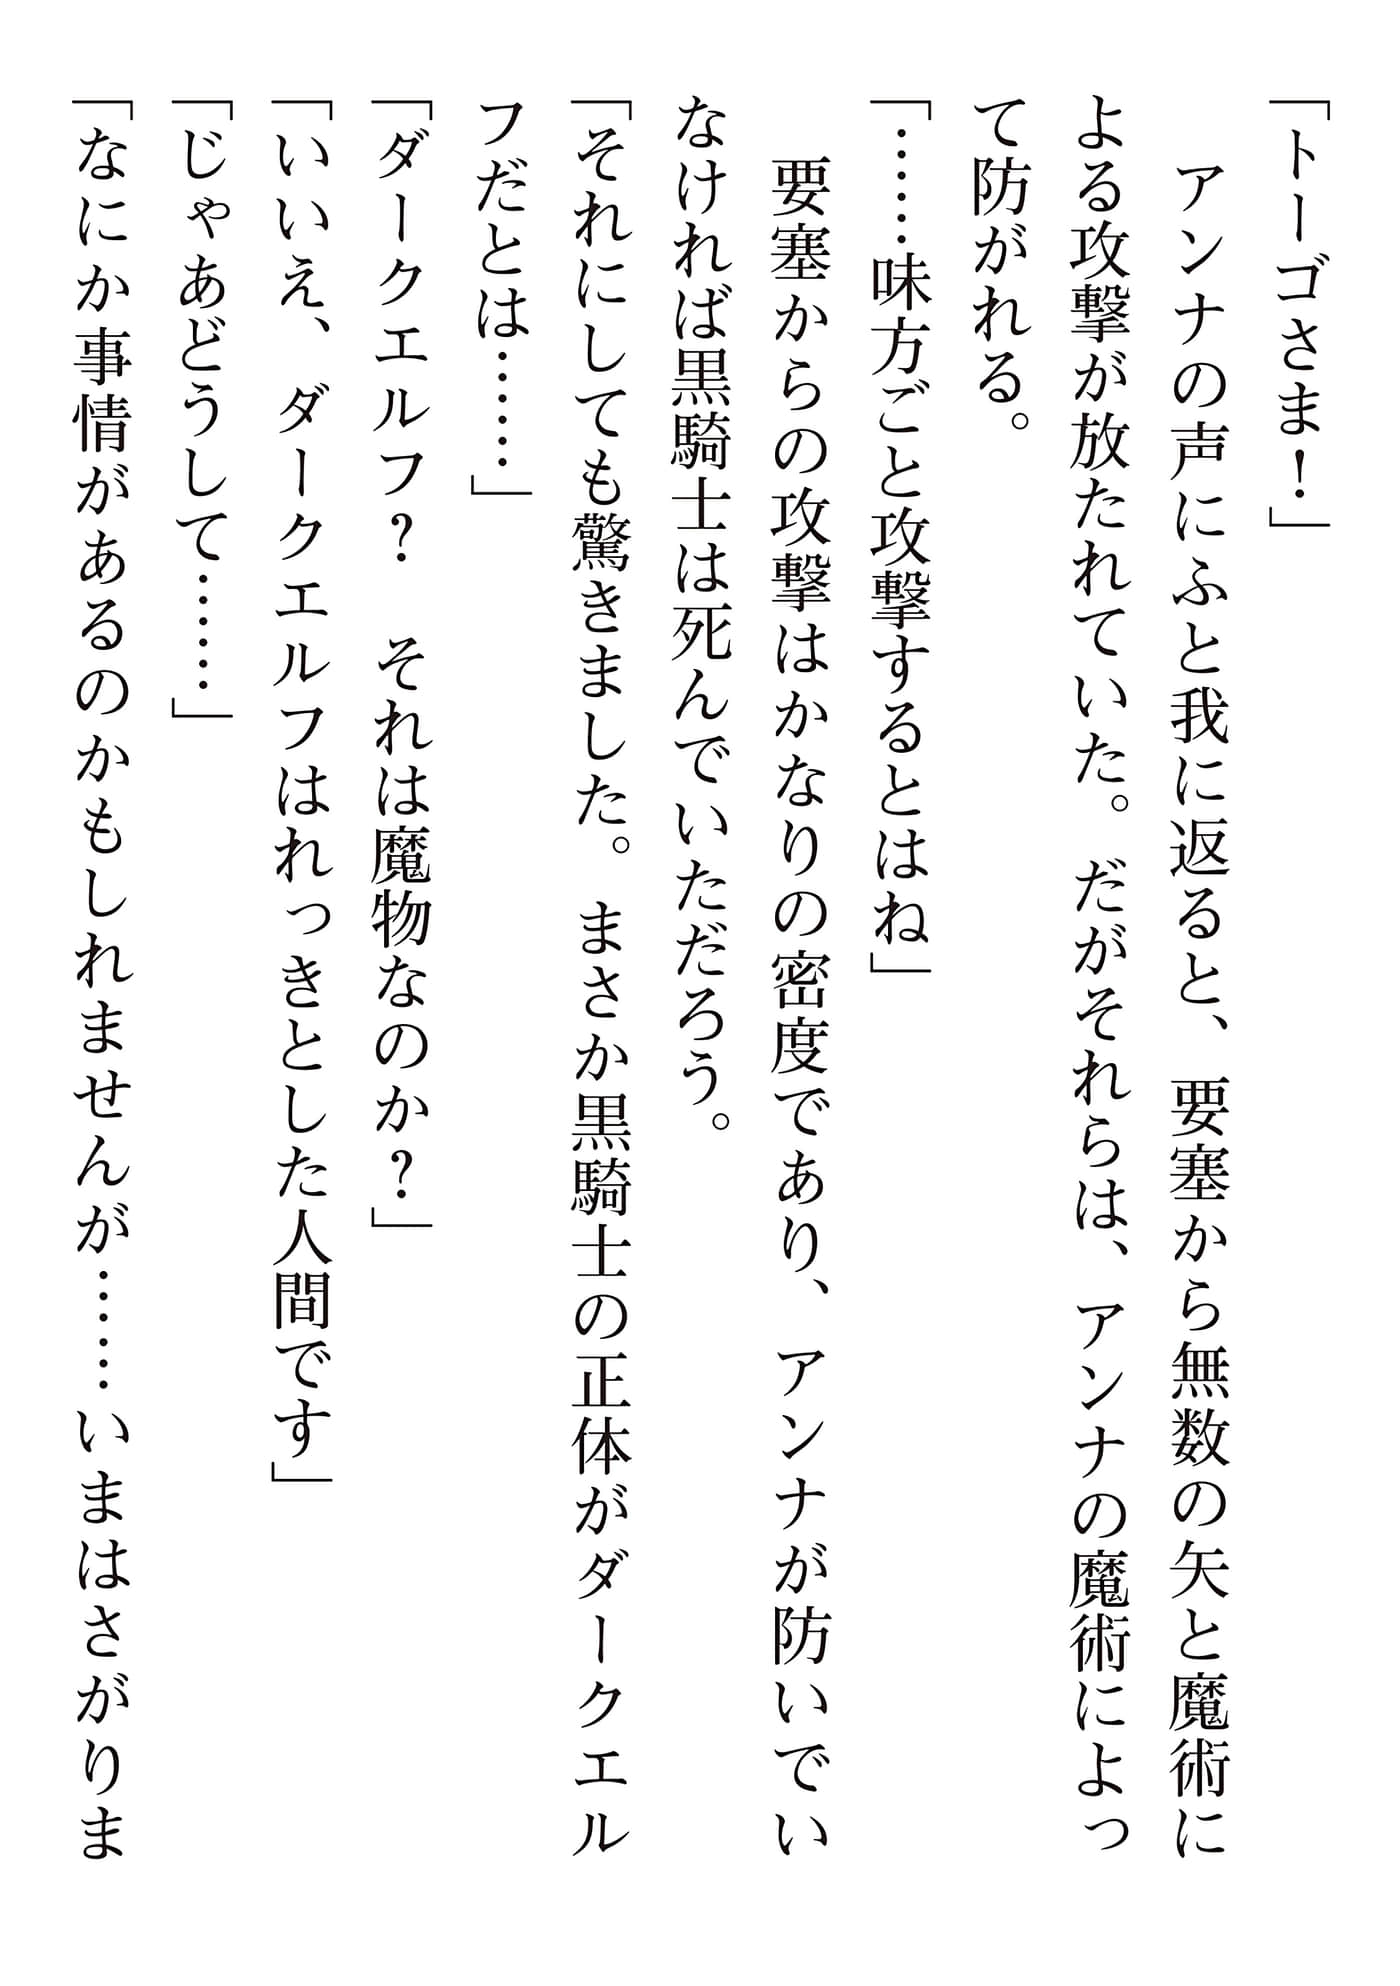 「トーゴさま！」
　アンナの声にふと我に返ると、要塞から無数の矢と魔術に
よる攻撃が放たれていた。だがそれらは、アンナの魔術によっ
て防がれる。
「……味方ごと攻撃するとはね」
　要塞からの攻撃はかなりの密度であり、アンナが防いでい
なければ黒騎士は死んでいただろう。
「それにしても驚きました。まさか黒騎士の正体がダークエル
フだとは……」
「ダークエルフ？　それは魔物なのか？」
「いいえ、ダークエルフはれっきとした人間です」
「じゃあどうして……」
「なにか事情があるのかもしれませんが……いまはさがりま